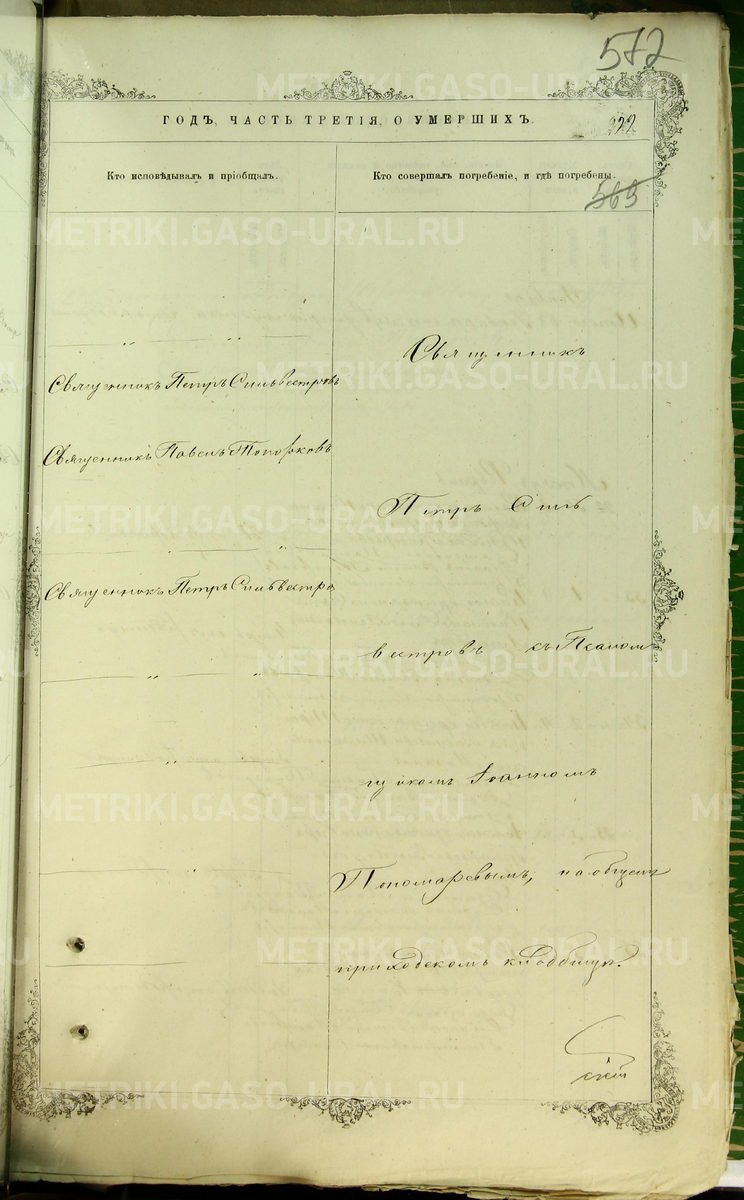 572
ГОДЪ, ЧАСТЬ ТРЕТІЯ, О УМЕРШИХЪ.
222
Кто исповѣдывалъ и пріобщалъ.
Кто совершалъ погребеніе, и гдѣ погребены.
569
Священникъ Петръ Сильвестровъ
Священникъ Павелъ Топорковъ
Священникъ Петръ Сильвестро
Священникъ
Петръ Силь
вестровъ съ Псалом
щикомъ Іоанномъ
Пономаревымъ, на общемъ
приходскомъ кладбищѣ.
METRIKI.GASO-URAL.RU